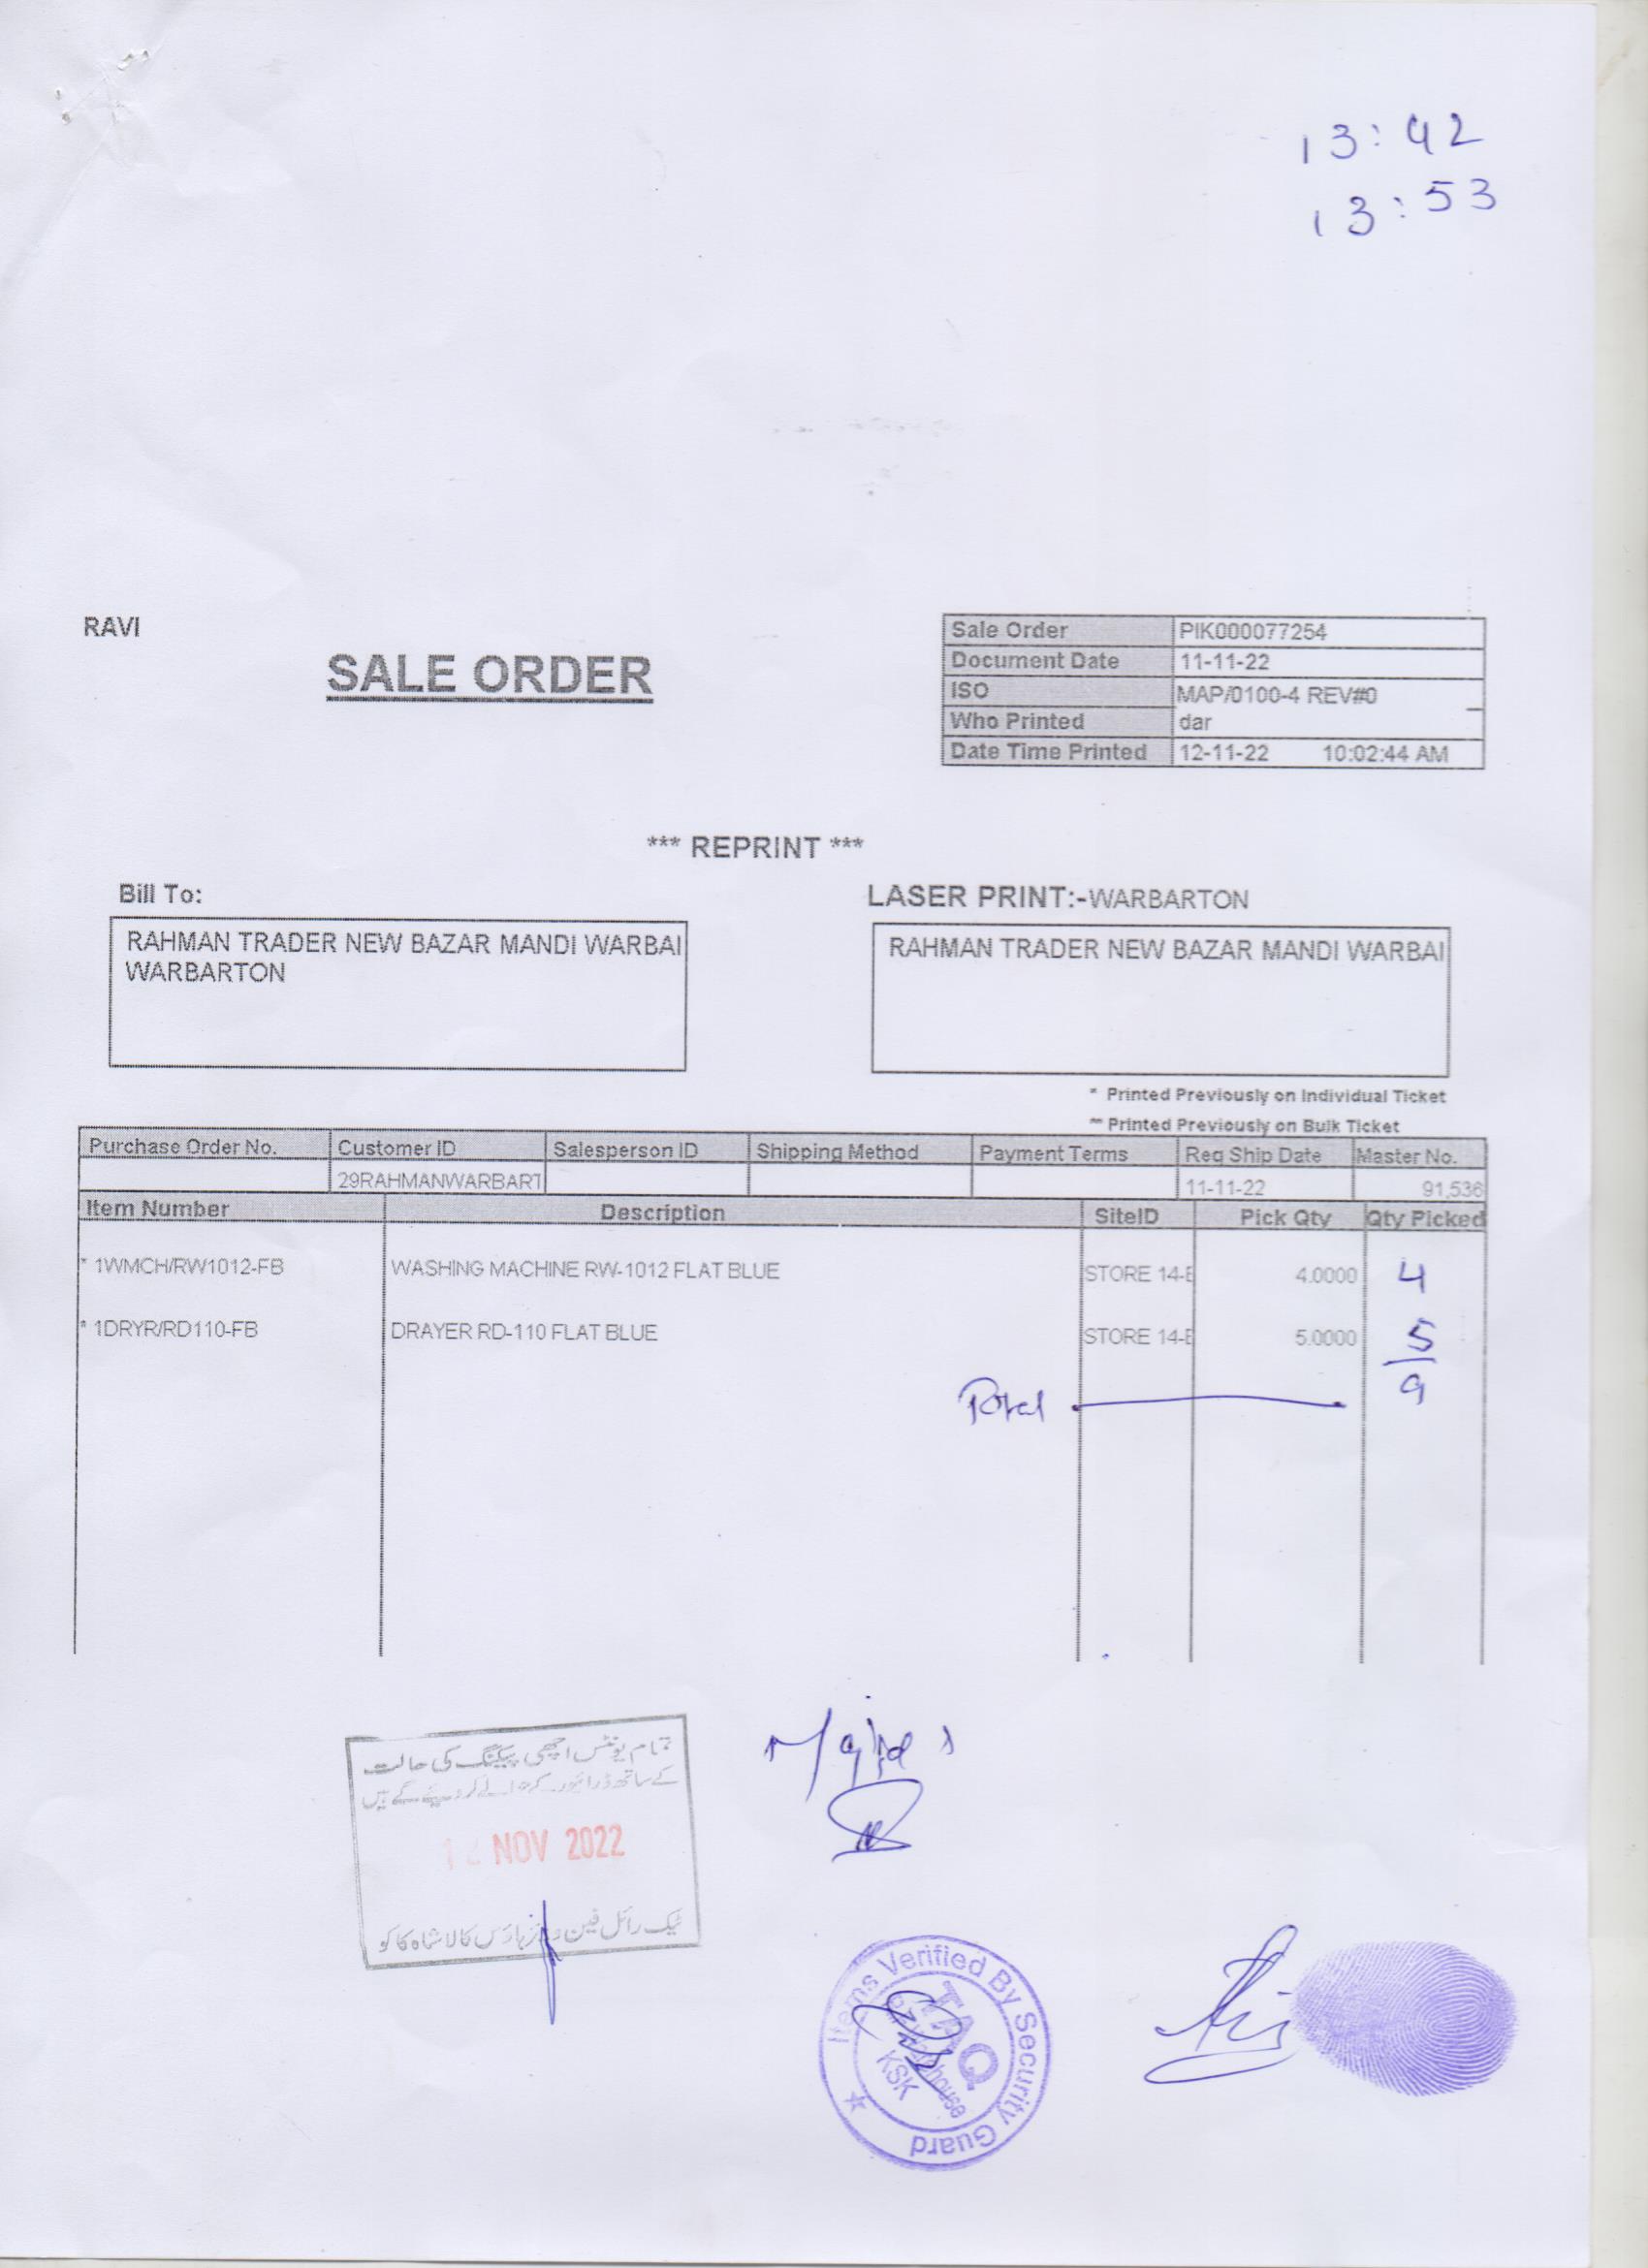 13:42
13:53
RAVI
SALE ORDER
Sale Order PIK000077254
Document Date 11-11-22
ISO MAP/0100-4 REV#0
Who Printed dar
Date Time Printed 12-11-22 10:02:44 AM
*** REPRINT ***
Bill To:
RAHMAN TRADER NEW BAZAR MANDI WARBAI
WARBARTON
LASER PRINT:-WARBARTON
RAHMAN TRADER NEW BAZAR MANDI WARBAI
* Printed Previously on Individual Ticket
** Printed Previously on Bulk Ticket
Purchase Order No. Customer ID Salesperson ID Shipping Method Payment Terms Req Ship Date Master No.
29RAHMANWARBART 11-11-22 91,536
Item Number Description SiteID Pick Qty Qty Picked
* 1WMCH/RW1012-FB WASHING MACHINE RW-1012 FLAT BLUE STORE 14-E 4.0000 4
* 1DRYR/RD110-FB DRAYER RD-110 FLAT BLUE STORE 14-E 5.0000 5
Total 9
تمام یونٹس اچھی پیکنگ کی حالت
کے ساتھ ڈرائیور کے حوالے کر دیئے گئے ہیں
NOV 2022
ٹیک رائل فین ویئر ہاؤس کالا شاہ کاکو
Majid
Items Verified By Security Guard
TAQ
Warehouse
KSK